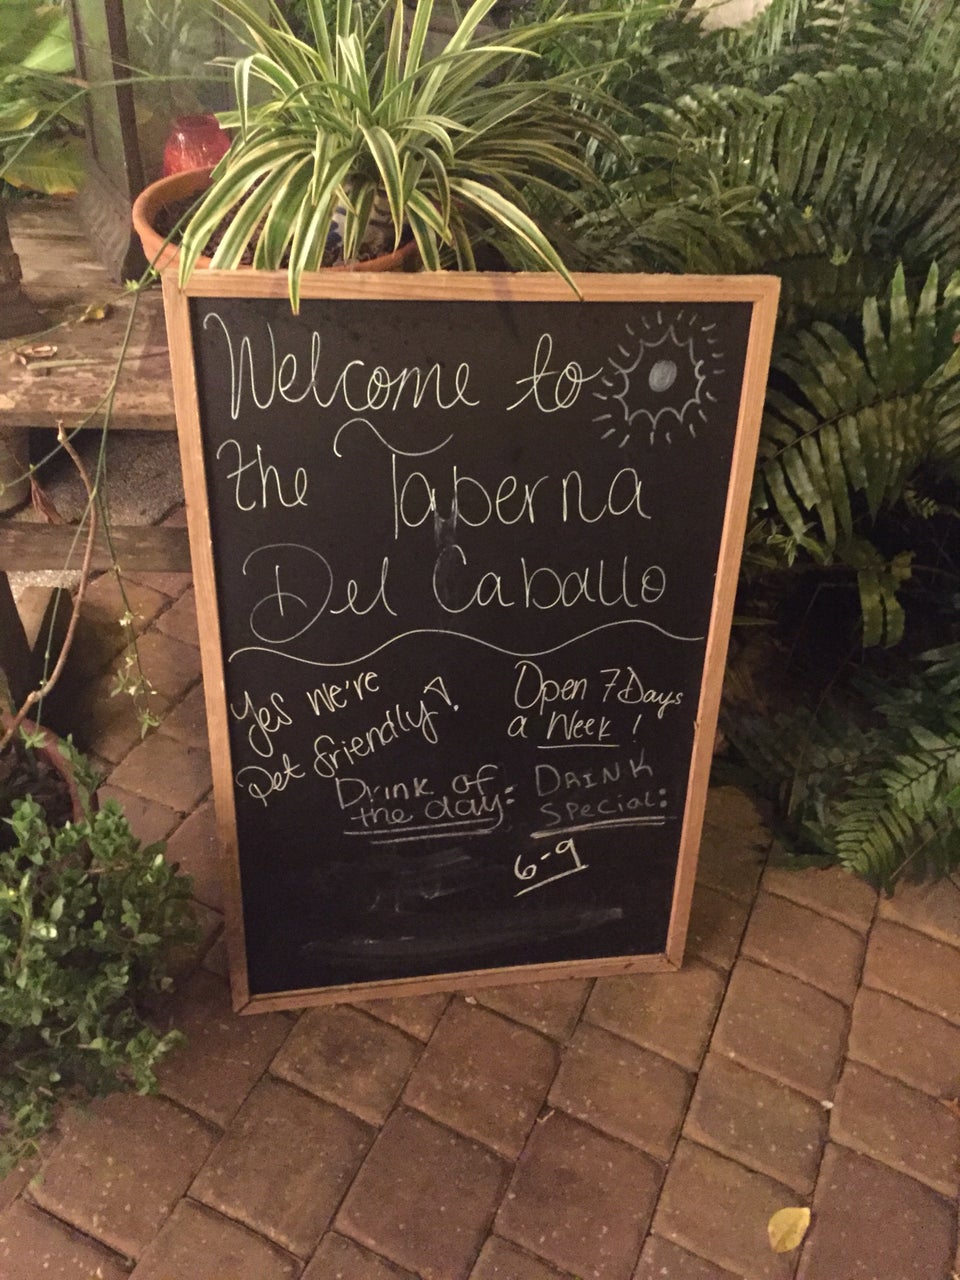 Welcome to
the Taberna
Del Caballo
Yes we're
Pet friendly!
Open 7 Days
a Week!
Drink of
the day:
DRINK
Special:
6-9